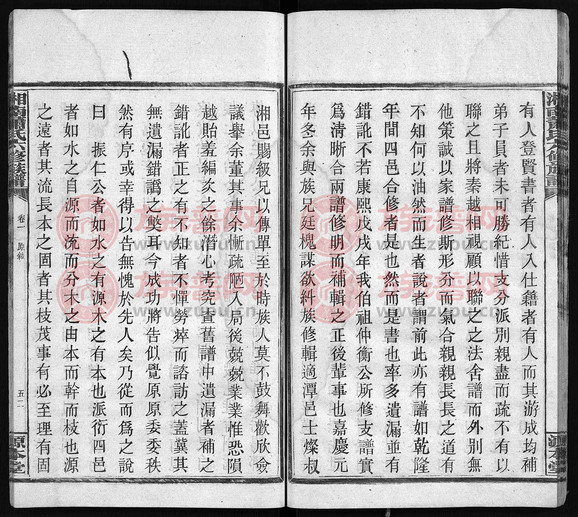 有人登賢書者有人入仕籍者有人而其游成均補
弟子員者未可勝紀惜支分派別親盡而疏不有以
聯之且將秦越相視顧以聯之之法舍譜而外別無
他策誠以家譜修斯形分而氣合親親長長之道有
不知何以油然而生者說者謂前此亦有譜如乾隆
年間四邑合修者是也然而是書也率多遺漏並有
錯訛不若康熙戊戌年我伯祖仲衡公所修支譜實
為清晰合兩譜修明而補輯之正後輩事也嘉慶元
年冬余與族兄廷槐謀欲糾族修輯適潭邑士燦叔
湘邑賜級兄以傳單至於時族人莫不鼓舞歡欣僉
議舉余董其事余慚疏陋入局後兢兢業業惟恐隕
越貽羞編次之餘潛心考究查舊譜中遺漏者補之
錯訛者正之有不知者不憚勞瘁而諮訪之蓋冀其
無遺漏錯譌之獘耳今成功將告似覺原原委委秩
然有序或幸得以告無愧於先人矣乃從而為之說
曰 振仁公者如水之有源木之有本也派衍四邑
者如水之自源而流而分木之由本而幹而枝也源
之遠者其流長本之固者其枝茂事有必至理有固
卷一 原敘
五二
源本堂
源本堂
族譜网
www.zupu.cn